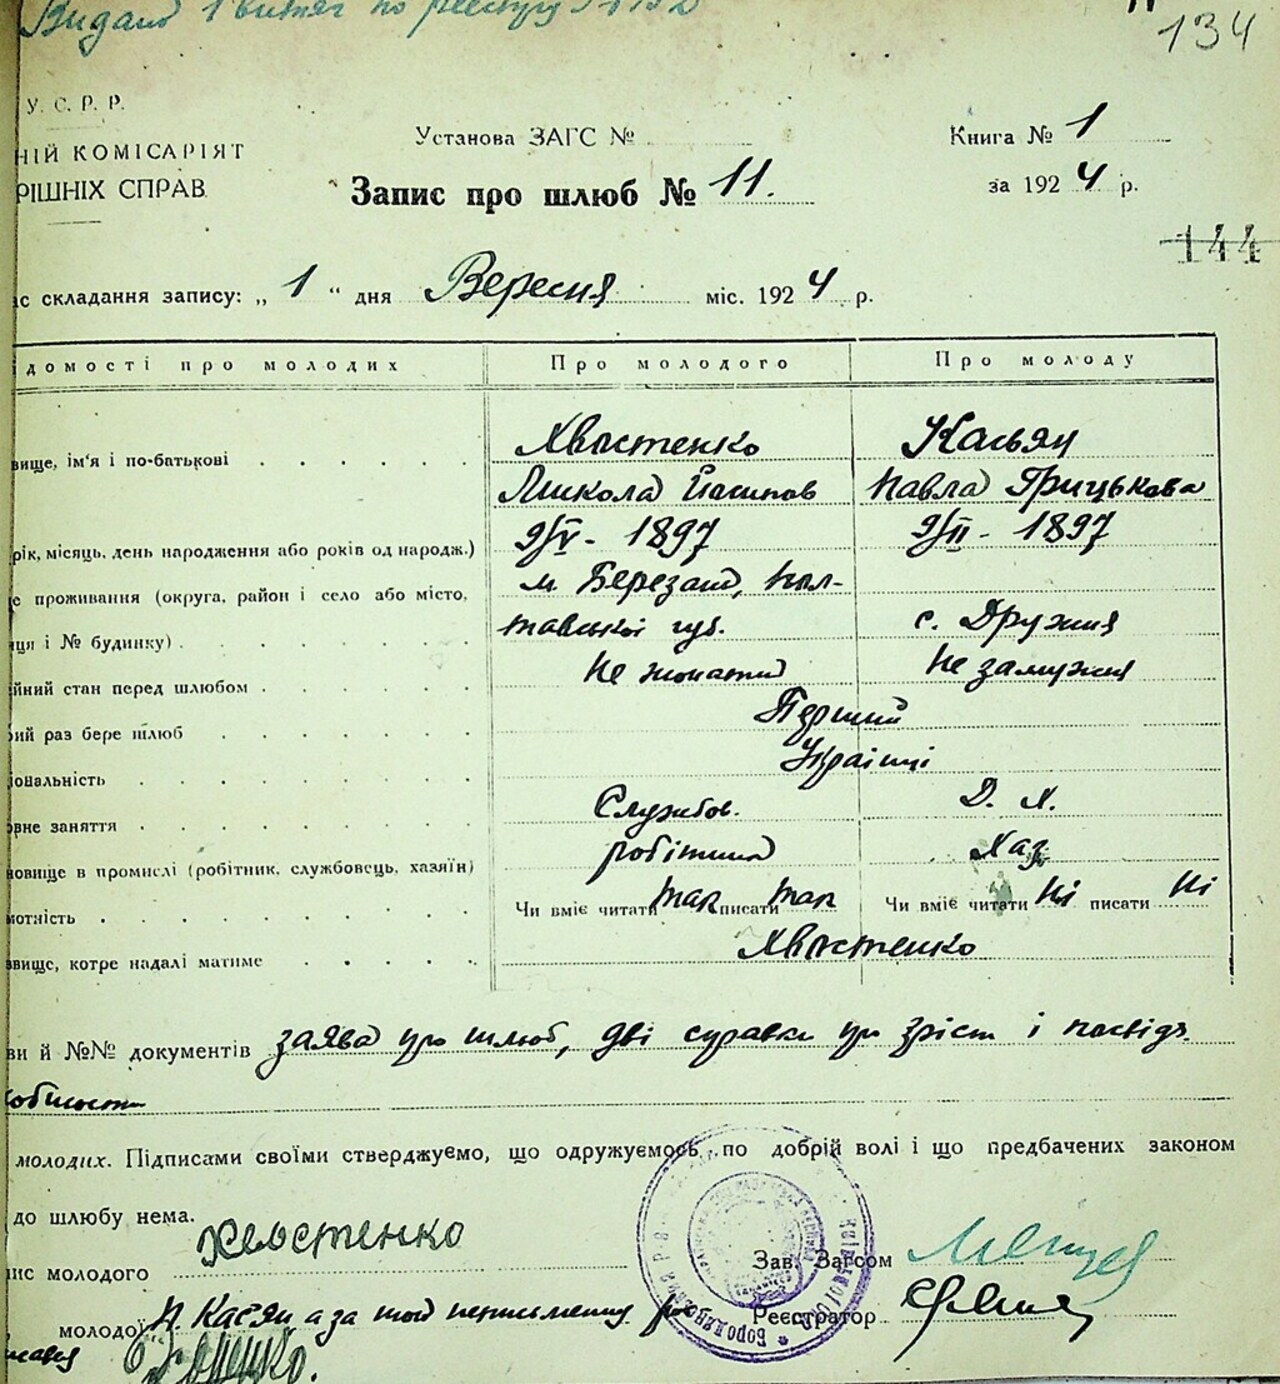 Видано 1 витяг по реєстру
134
У. С. Р. Р.
НІЙ КОМІСАРІЯТ
РІШНІХ СПРАВ
Установа ЗАГС №
Книга № 1
Запис про шлюб № 11.
за 1924 р.
144
ас складання запису: „ 1 “ дня Вересня міс. 1924 р.
ідомості про молодих Про молодого Про молоду
вище, ім'я і по-батькові Хвостенко Касьян
Микола Йосипов Павла Грицькова
рік, місяць, день народження або років од народж.) 9/V - 1897 9/II - 1897
е проживання (округа, район і село або місто, м. Березань, Пол-
ця і № будинку) тавської губ. с. Дружня
йний стан перед шлюбом Не жонатий Не замужня
ий раз бере шлюб Перший
іональність Українці
вне заняття Службов. Д. Х.
новище в промислі (робітник, службовець, хазяїн) робітник Хаз
мотність Чи вміє читати так писати так Чи вміє читати ні писати ні
звище, котре надалі матиме Хвостенко
ви й №№ документів заява про шлюб, дві справки про зріст і посвідч.
молодих. Підписами своїми стверджуємо, що одружуємось по добрій волі і що предбачених законом
до шлюбу нема.
ис молодого Хвостенко
Зав. Загсом
молодої П. Касян а за неї неписьменну
Реєстратор